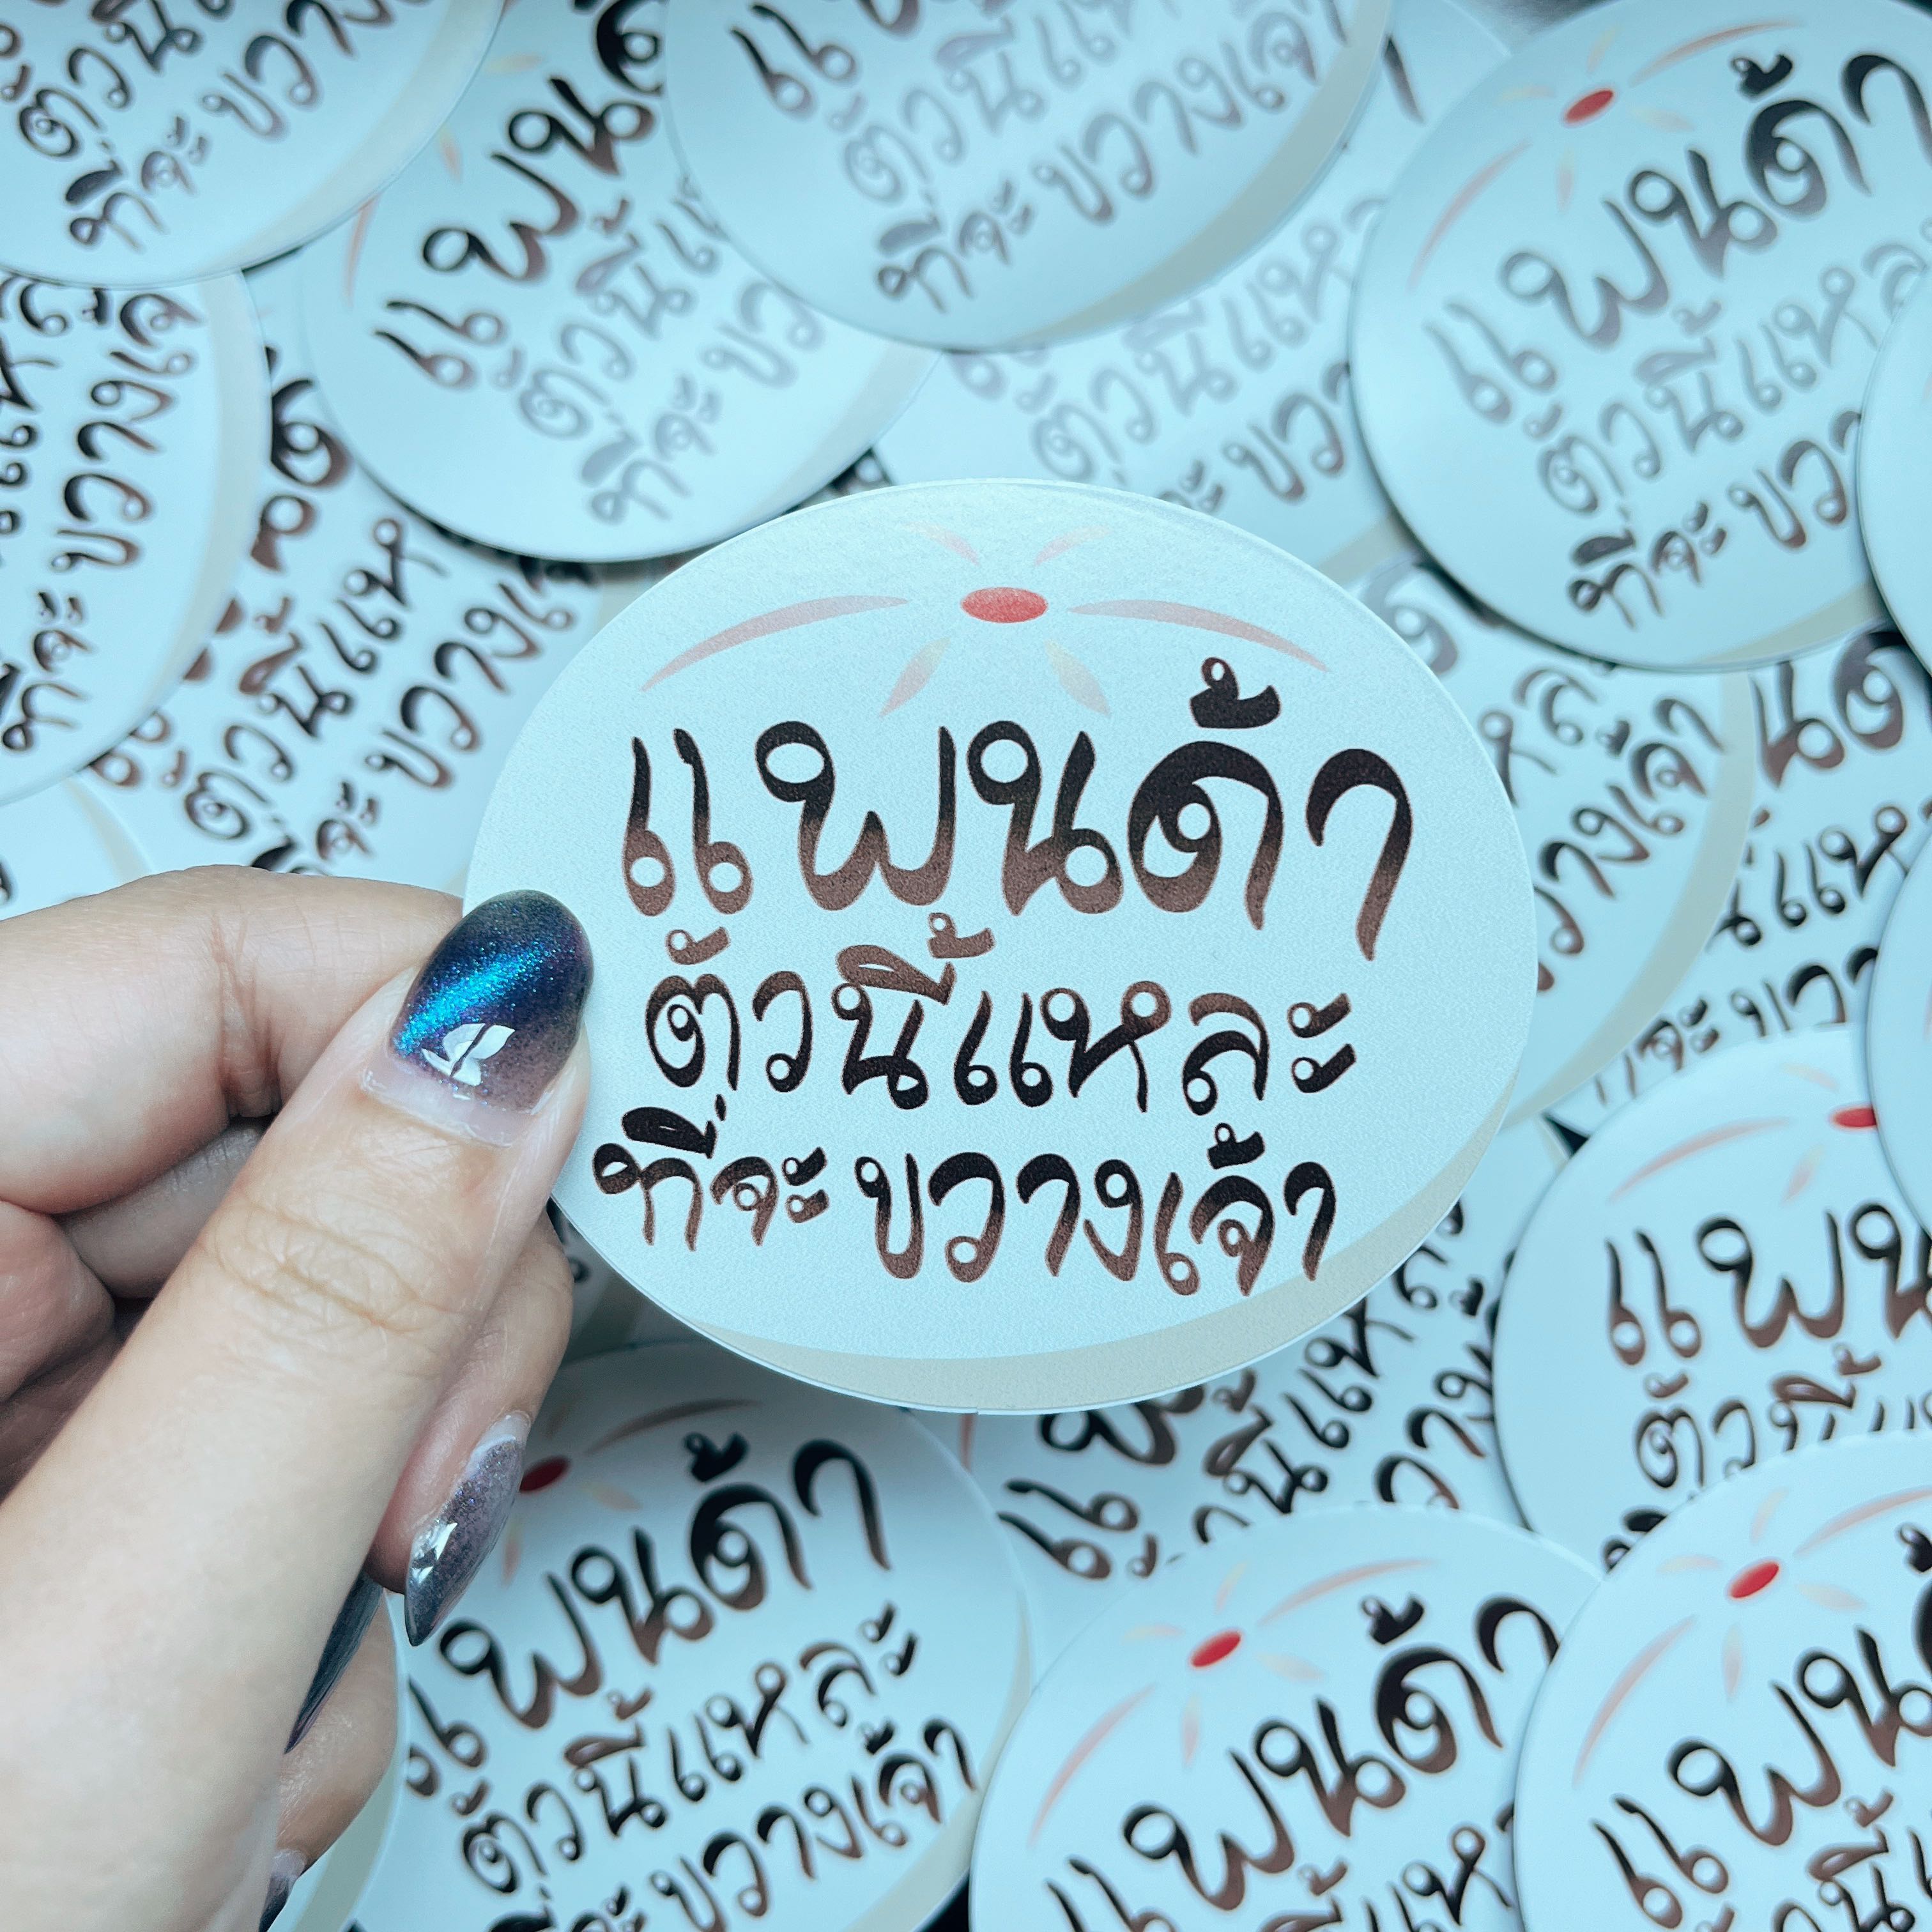 แพนด้า
ตัวนี้แหละ
ที่จะขวางเจ้า